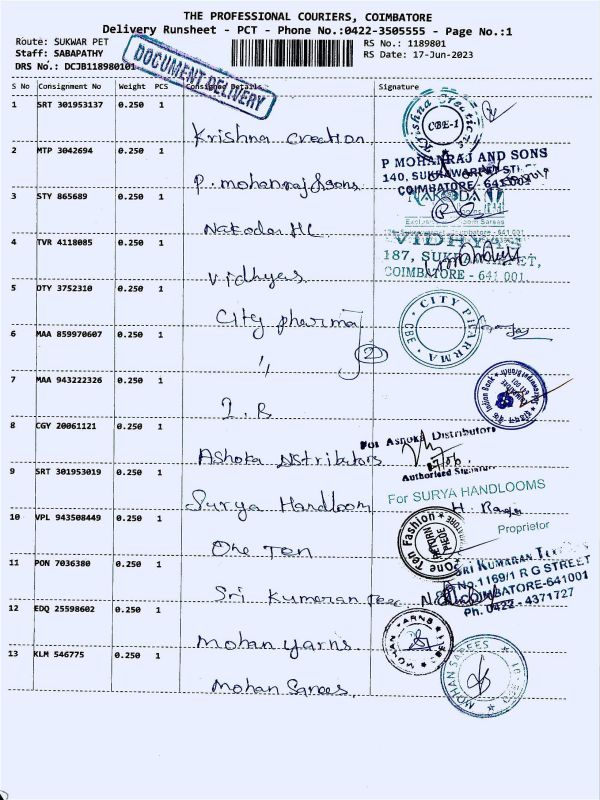 THE PROFESSIONAL COURIERS, COIMBATORE
Delivery Runsheet - PCT - Phone No.:0422-3505555 - Page No.:1
Route: SUKWAR PET
RS No.: 1189801
Staff: SABAPATHY
RS Date: 17-Jun-2023
DRS No.: DCJB118980101
DOCUMENT DELIVERY
S No Consignment No Weight PCS Consignee Details Signature
1 SRT 301953137 0.250 1
Krishna Creation
Krishna Creation CBE-1
2 MTP 3042694 0.250 1
P. Mohanraj & sons
P MOHANRAJ AND SONS
140, SUKRAWARPET ST
COIMBATORE - 641 001
3 STY 865689 0.250 1
Nakodan
NAKODA
4 TVR 4118085 0.250 1
Vidhyas
VIDHYAS
187, SUKRAWARPET,
COIMBATORE - 641 001
5 OTY 3752310 0.250 1
City pharma
CITY PHARMA CBE
6 MAA 859970607 0.250 1
" 2
7 MAA 943222326 0.250 1
I.B
Indian Bank
8 CGY 20061121 0.250 1
Ashoka Distributors
For Ashoka Distributors
Authorised Signature
9 SRT 301953019 0.250 1
Surya Handloom
For SURYA HANDLOOMS
Proprietor
10 VPL 943508449 0.250 1
One Ten
One Ten Fashion
11 PON 7036380 0.250 1
Sri Kumaran Teec
SRI KUMARAN
No.1169/1 R G STREET
COIMBATORE-641001
Ph. 0422 - 4371727
12 EDQ 25598602 0.250 1
Mohan yarns
MOHAN YARNS
13 KLM 546775 0.250 1
Mohan Sarees,
MOHAN SAREES